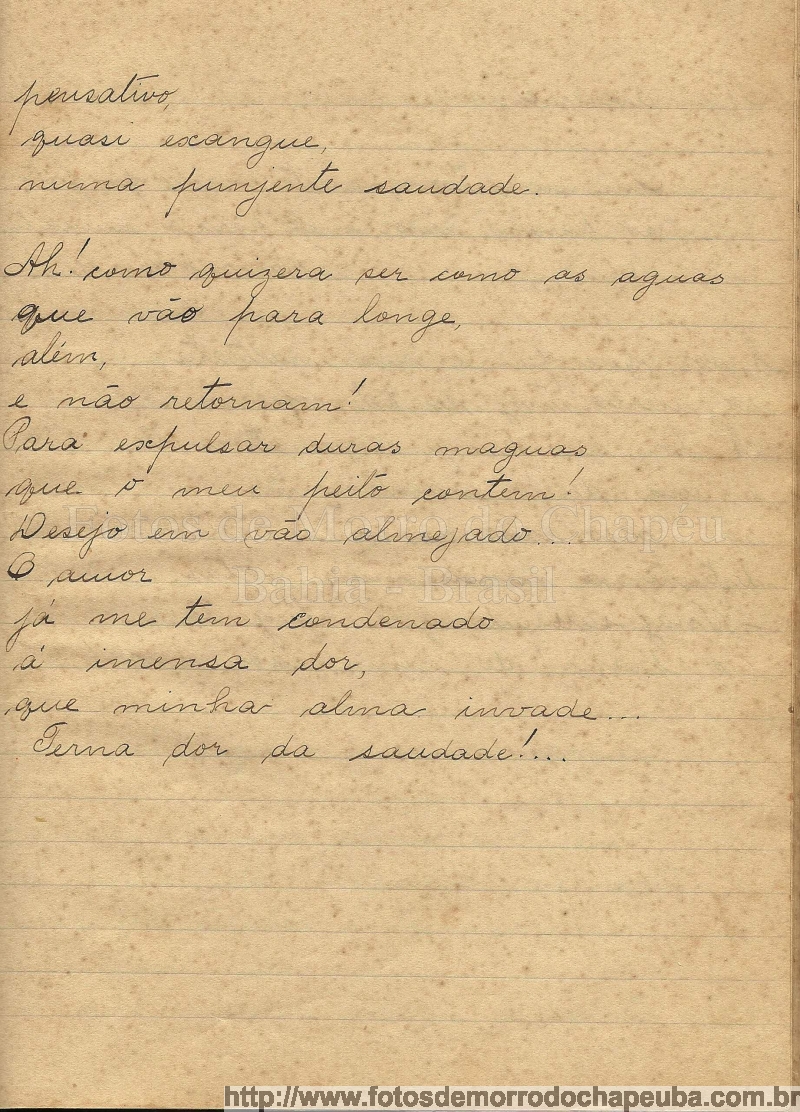 pensativo,
quasi exangue,
numa punjente saudade.
Ah! como quizera ser como as aguas
que vão para longe,
além,
e não retornam!
Para expulsar duras maguas
que o meu peito contem!
Desejo em vão almejado...
O amor
já me tem condenado
á imensa dor,
que minha alma invade...
Terna dor da saudade!...
Fotos de Morro do Chapéu
Bahia - Brasil
http://www.fotosdemorrodochapeuba.com.br